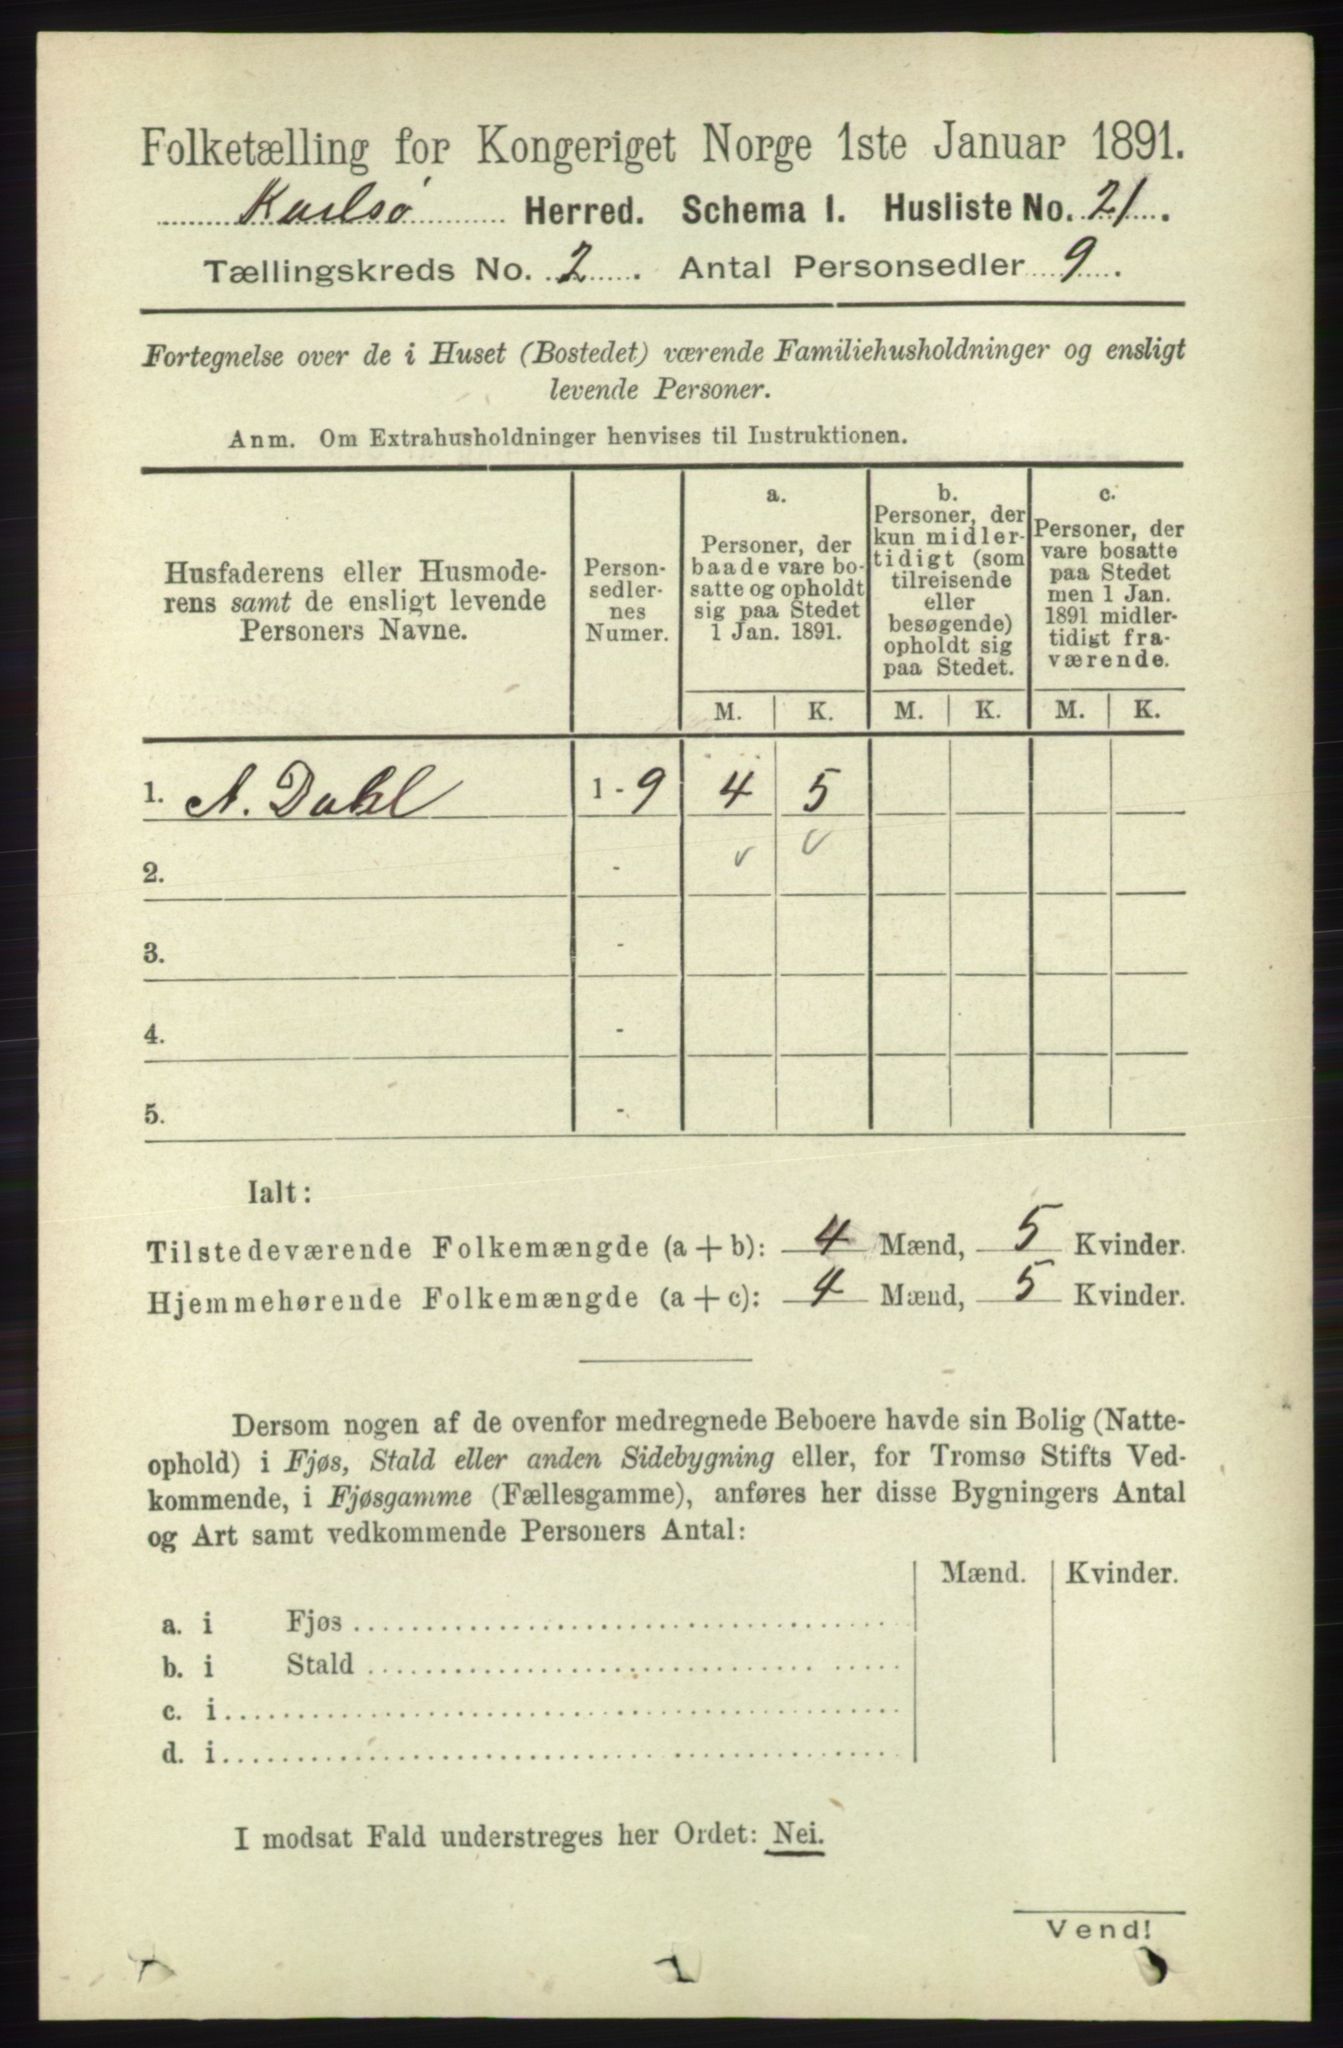 Folketælling for Kongeriget Norge 1ste Januar 1891.
Karlsø Herred. Schema I. Husliste No. 21.
Tællingskreds No. 2. Antal Personsedler 9.
Fortegnelse over de i Huset (Bostedet) værende Familiehusholdninger og ensligt
levende Personer.
Anm. Om Extrahusholdninger henvises til Instruktionen.
Husfaderens eller Husmode-
rens samt de ensligt levende
Personers Navne.
Person-
sedler-
nes
Numer.
a.
Personer, der
baade vare bo-
satte og opholdt
sig paa Stedet
1 Jan. 1891.
b.
Personer, der
kun midler-
tidigt (som
tilreisende
eller
besøgende)
opholdt sig
paa Stedet.
c.
Personer, der
vare bosatte
paa Stedet
men 1 Jan.
1891 midler-
tidigt fra-
værende.
M. K. M. K. M. K.
1. A. Dahl 1 - 9 4 5
2. - v v
3. -
4. -
5. -
Ialt:
Tilstedeværende Folkemængde (a + b): 4 Mænd, 5 Kvinder.
Hjemmehørende Folkemængde (a + c): 4 Mænd, 5 Kvinder.
Dersom nogen af de ovenfor medregnede Beboere havde sin Bolig (Natte-
ophold) i Fjøs, Stald eller anden Sidebygning eller, for Tromsø Stifts Ved-
kommende, i Fjøsgamme (Fællesgamme), anføres her disse Bygningers Antal
og Art samt vedkommende Personers Antal:
Mænd. Kvinder.
a. i Fjøs
b. i Stald
c. i
d. i
I modsat Fald understreges her Ordet: Nei.
Vend!